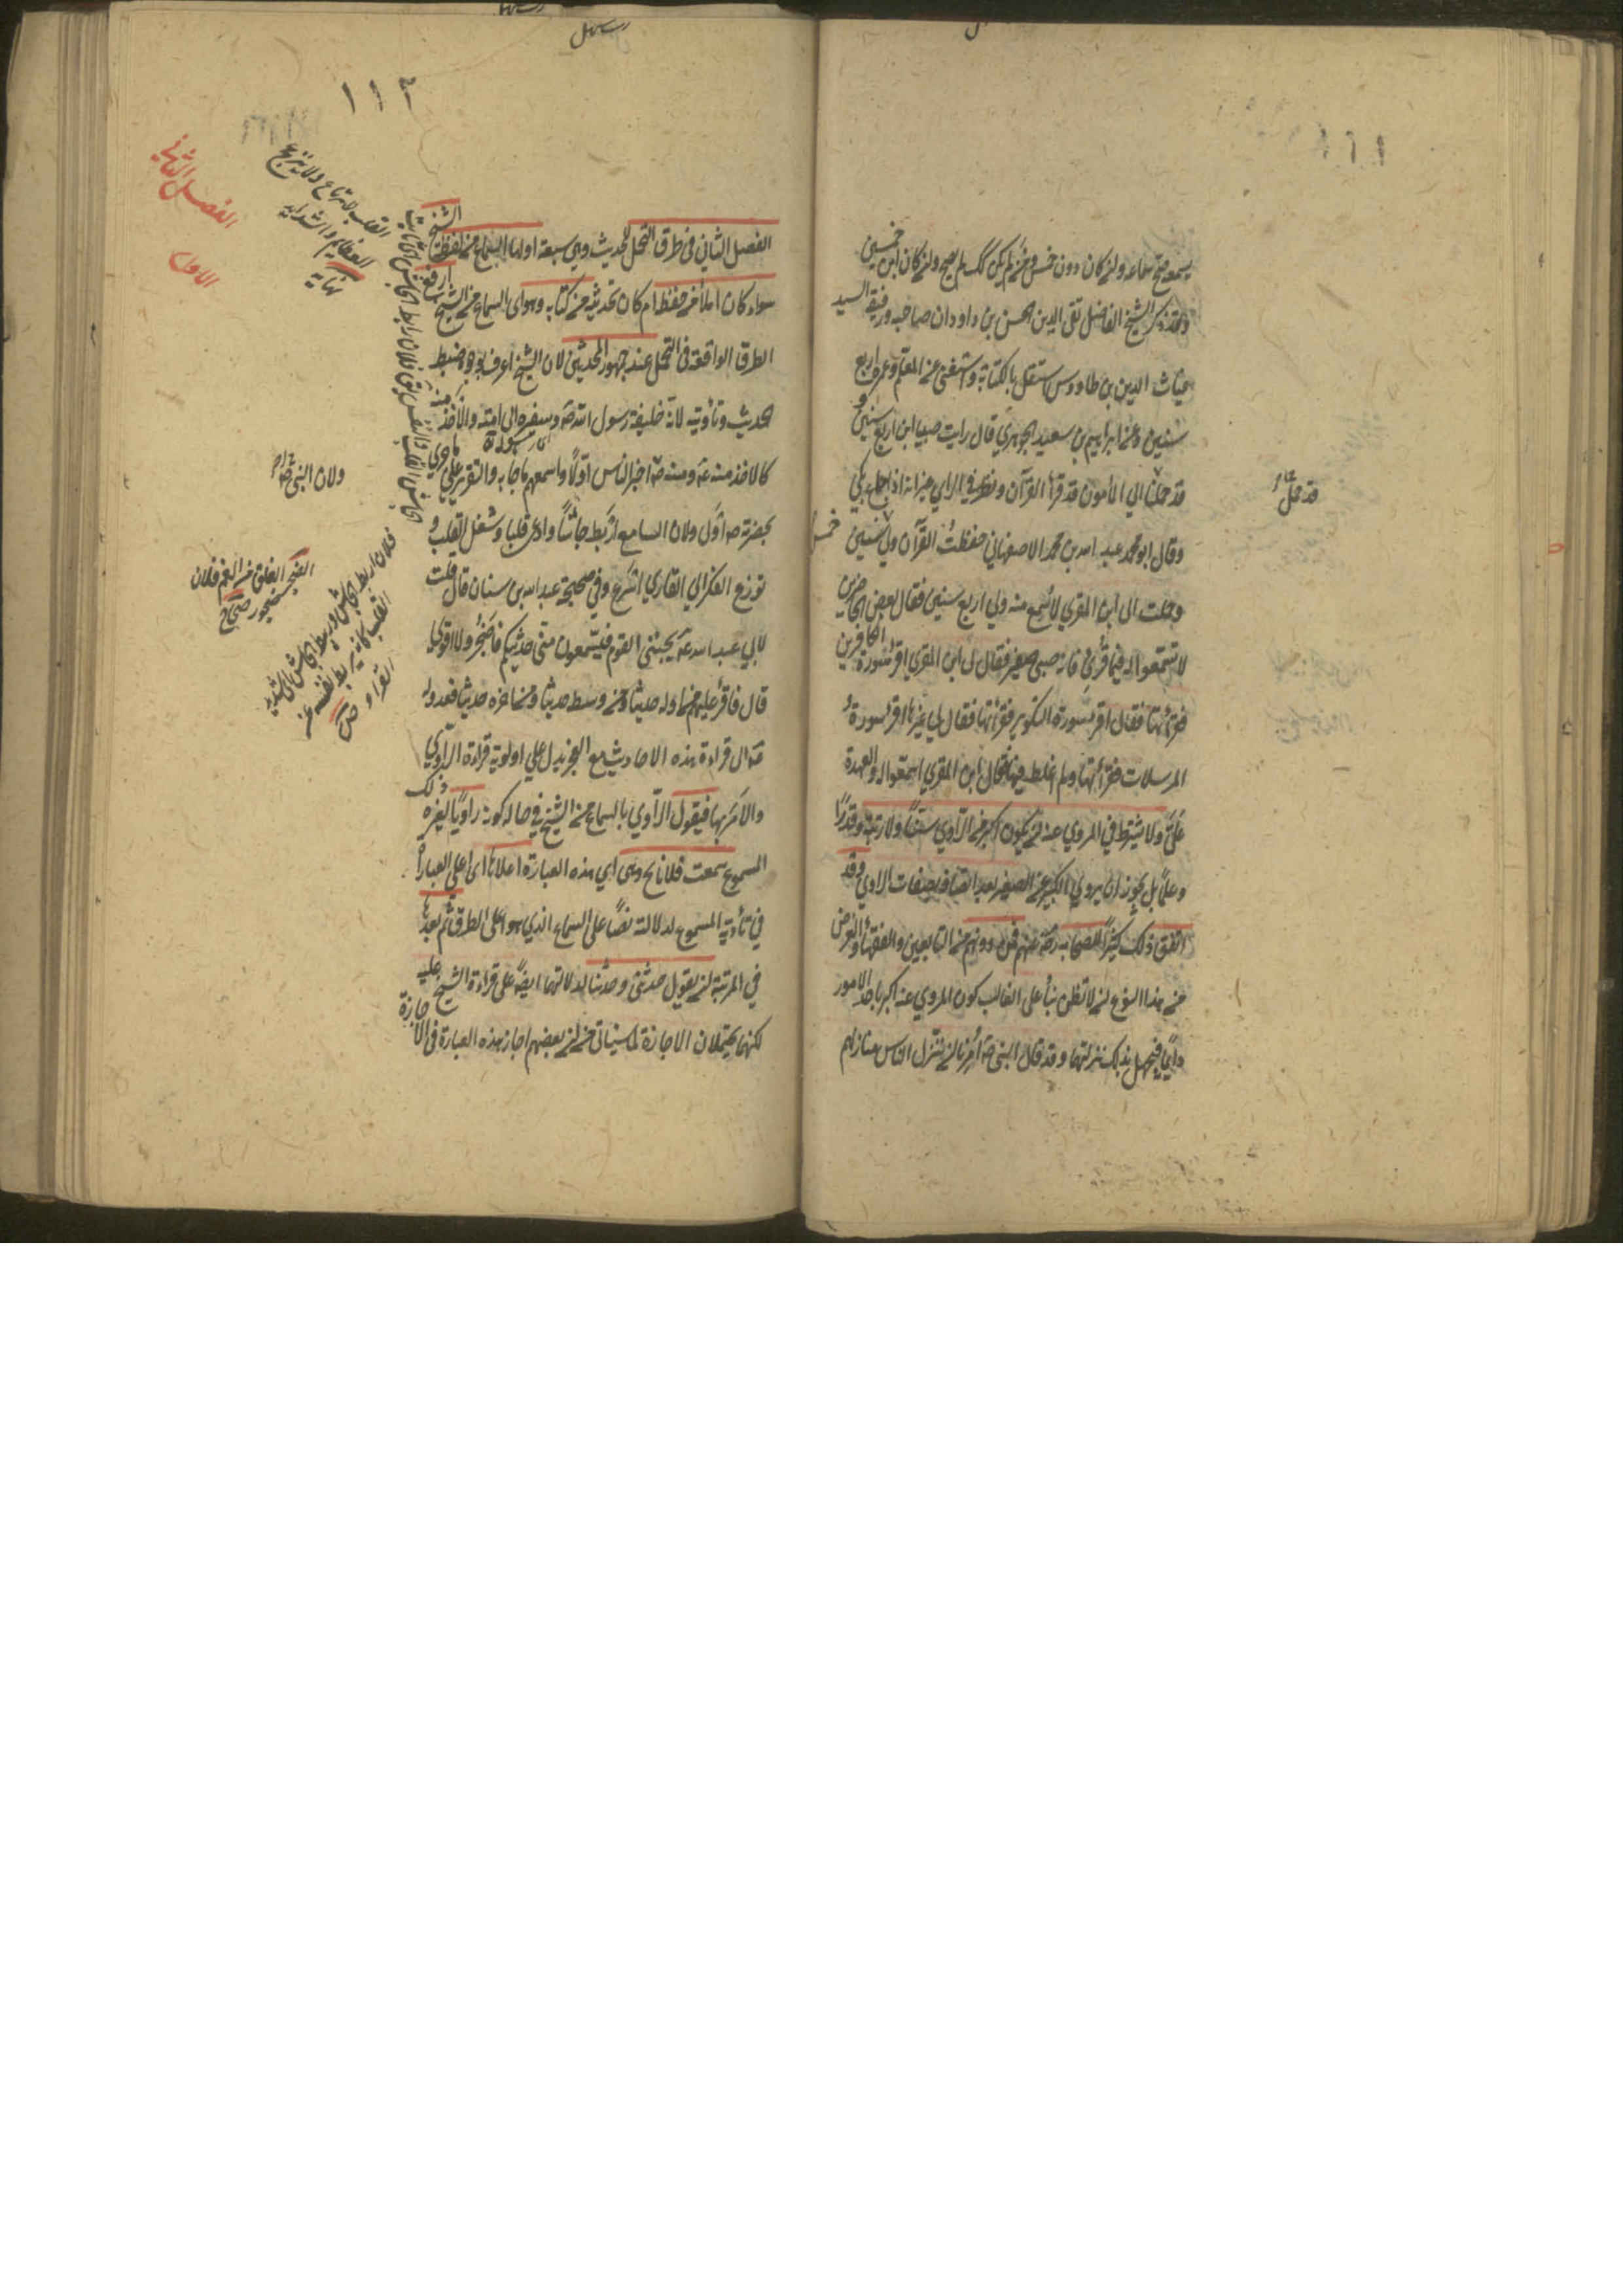 ١١١
يسمعه صح سماعه وان كان دون خمس ومن لم يكن كك لم يصح وان كان ابن خمسين
وقد ذكر الشيخ الفاضل تقي الدين الحسن بن داود ان صاحبه ورفيقه السيد
غياث الدين بن طاووس استقل بالكتابة واستغنى عن المعلم وعمره اربع
سنين وعن ابراهيم بن سعيد الجوهري قال رايت صبيا ابن اربع سنين و
قد حمل الي المأمون قد قرأ القرآن ونظر في الراي غير انه اذا جاع بكي
وقال ابو محمد عبد الله بن محمد الاصفهاني حفظت القرآن ولي خمس سنين
وحملت الى ابن المقري لاسمع منه ولي اربع سنين فقال بعض الحاضرين
لا تسمعوا له فيما قرئ فانه صبي صغير فقال لي ابن المقري اقرأ سورة الكافرين
فقرأتها فقال اقرأ سورة التكوير فقرأتها فقال لي غيرها اقرأ سورة و
المرسلات فقرأتها ولم اغلط فيها فقال ابن المقري اسمعوا له والعهدة
عليّ ولا يشترط في المروي عنه ان يكون اكبر من الراوي سنًا ولا رتبة وقدرًا
وعلمًا بل يجوز ان يروي الكبير عن الصغير بعد اتصافه بصفات الراوي وقد
اتفق ذلك كثيرًا للصحابة رضي عنهم فمن دونهم من التابعين والفقهاء والغرض
من هذا النوع ان لا تظن بناء على الغالب كون المروي عنه اكبر باحد الامور
دائما فيجهل بذلك منزلتهما وقد قال النبي ص امرنا ان ننزل الناس منازلهم
قد حمل
١١٢
الفصل الثاني
الاول
الفصل الثاني في طرق التحمل للحديث وهي سبعة اولها السماع من لفظ الشيخ
سواء كان املاء من حفظه ام كان تحديثه من كتابه وهو اي السماع من الشيخ ارفع
الطرق الواقعة في التحمل عند جمهور المحدثين لان الشيخ اعرف بوجوه ضبط
الحديث وتأديته لانه خليفة رسول الله ص وسفيره الى امته والاخذ منه
كالاخذ منه ع ومنه ص اخبر الناس اولًا واسمعهم ما جاء به والتقرير على ما جري
بحضرته ص اولى ولان السامع اربط جاشًا واوعى قلبا وشغل القلب و
توزع الفكر الي القاري اسرع وفي صحيحة عبد الله بن سنان قال قلت
لابي عبد الله ع يجيئني القوم فيستمعون مني حديثكم فاضجر ولا اقوى
قال فاقرأ عليهم من اوله حديثا ومن وسطه حديثا ومن اخره حديثا فعدوله
ع الى قراءة هذه الاحاديث مع العجز يدل على اولوية قراءة الراوي
والا لامر بها فيقول الراوي بالسماع من الشيخ في حال كونه راويًا لغيره ذلك
المسموع سمعت فلانا وهي اي هذه العبارة اعلاها اي اعلى العبارات
في تأدية المسموع لدلالته نصًا على السماع الذي هو اعلى الطرق ثم بعدها
في المرتبة ان يقول حدثني وحدثنا لدلالتهما ايضا على قراءة الشيخ عليه
لكنهما يحتملان الاجازة لما سيأتي من ان بعضهم اجاز هذه العبارة في الاجازة
ولان النبي ص اخبر
الضجر القلق من الغم فلان
ضجر صحاح
فلان رابط الجاش وربيط الجاش اي شديد
القلب كانه يربط نفسه عن
الفرار صحاح
القلب لا يرتاع ولا ينزعج
العظايم والشدايد
نهاية